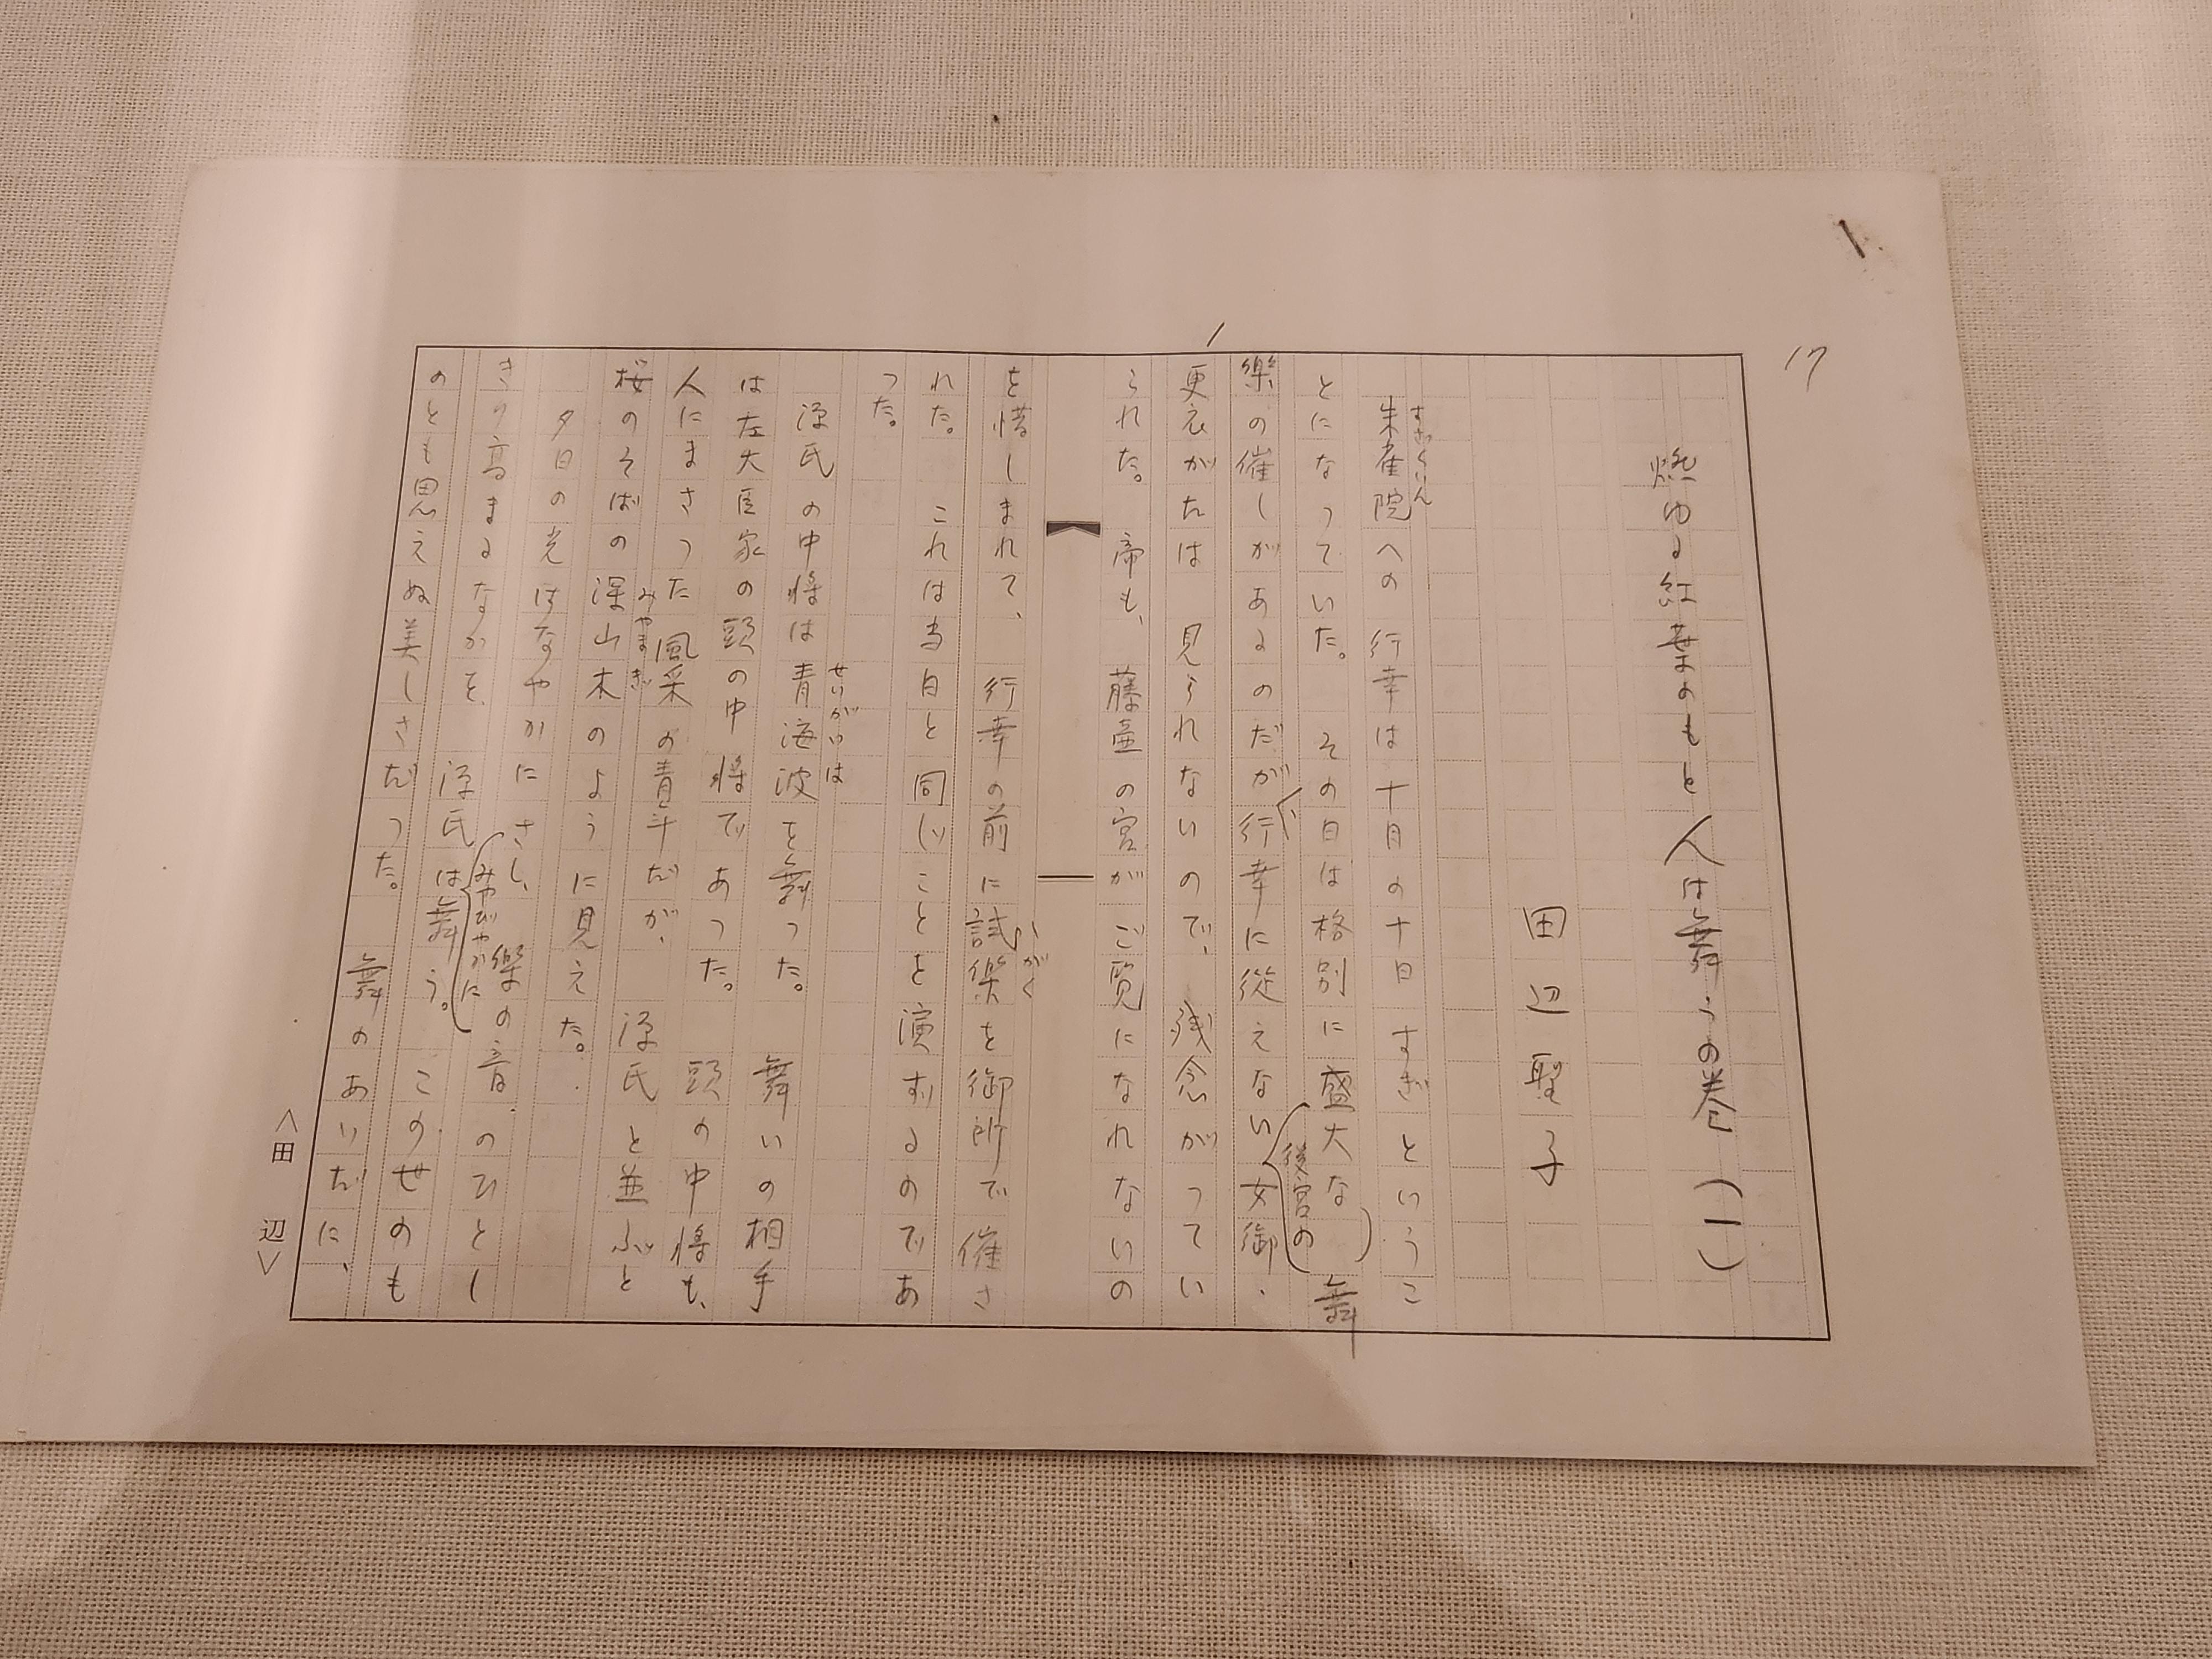 17
燃ゆる紅葉のもと人は舞うの巻(一)
田辺聖子
すざくいん
朱雀院への行幸は十月の十日すぎというこ
とになっていた。その日は格別に盛大な舞
後宮の
楽の催しがあるのだが、行幸に従えない女御・
更衣がたは見られないので、残念がってい
られた。帝も、藤壺の宮がご覧になれないの
を惜しまれて、行幸の前に試楽を御所で催さ
しがく
れた。これは当日と同じことを演ずるのであ
った。
せいがいは
源氏の中将は青海波を舞った。舞いの相手
は左大臣家の頭の中将であった。頭の中将も、
人にまさった風采の青年だが、源氏と並ぶと
みやまぎ
桜のそばの深山木のように見えた。
夕日の光はなやかにさし、楽の音のひとし
みやびやかに
きり高まるなかを、源氏は舞う。この世のも
のとも思えぬ美しさだった。舞のあいだに、
〈田辺〉